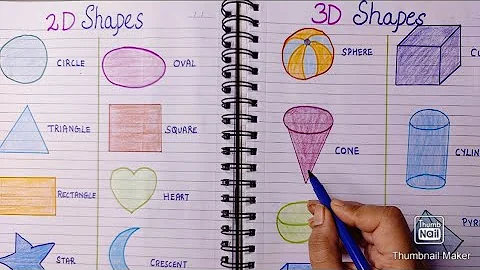 2D Shapes
CIRCLE
OVAL
TRIANGLE
SQUARE
RECTANGLE
HEART
STAR
CRESCENT
3D Shapes
SPHERE
CONE
Thumb
Nail
Thumbnail Maker